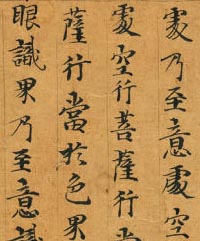 處乃至意處空
處空行菩薩行當
薩行當於色界
眼識界乃至意識